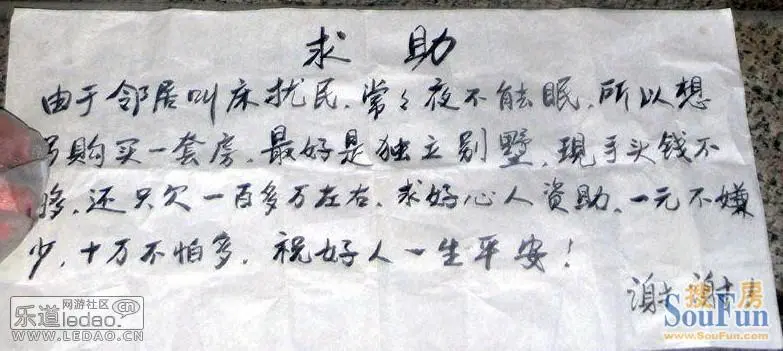 求助
由于邻居叫床扰民、常々夜不能眠、所以想
另购买一套房、最好是独立别墅、现手头钱不
够、还只欠一百多万左右、求好心人资助、一元不嫌
少、十万不怕多、祝好人一生平安！
谢谢
乐道 网游社区
ledao.cn
WWW.LEDAO.CN
搜房
SouFun
www.SouFun.com